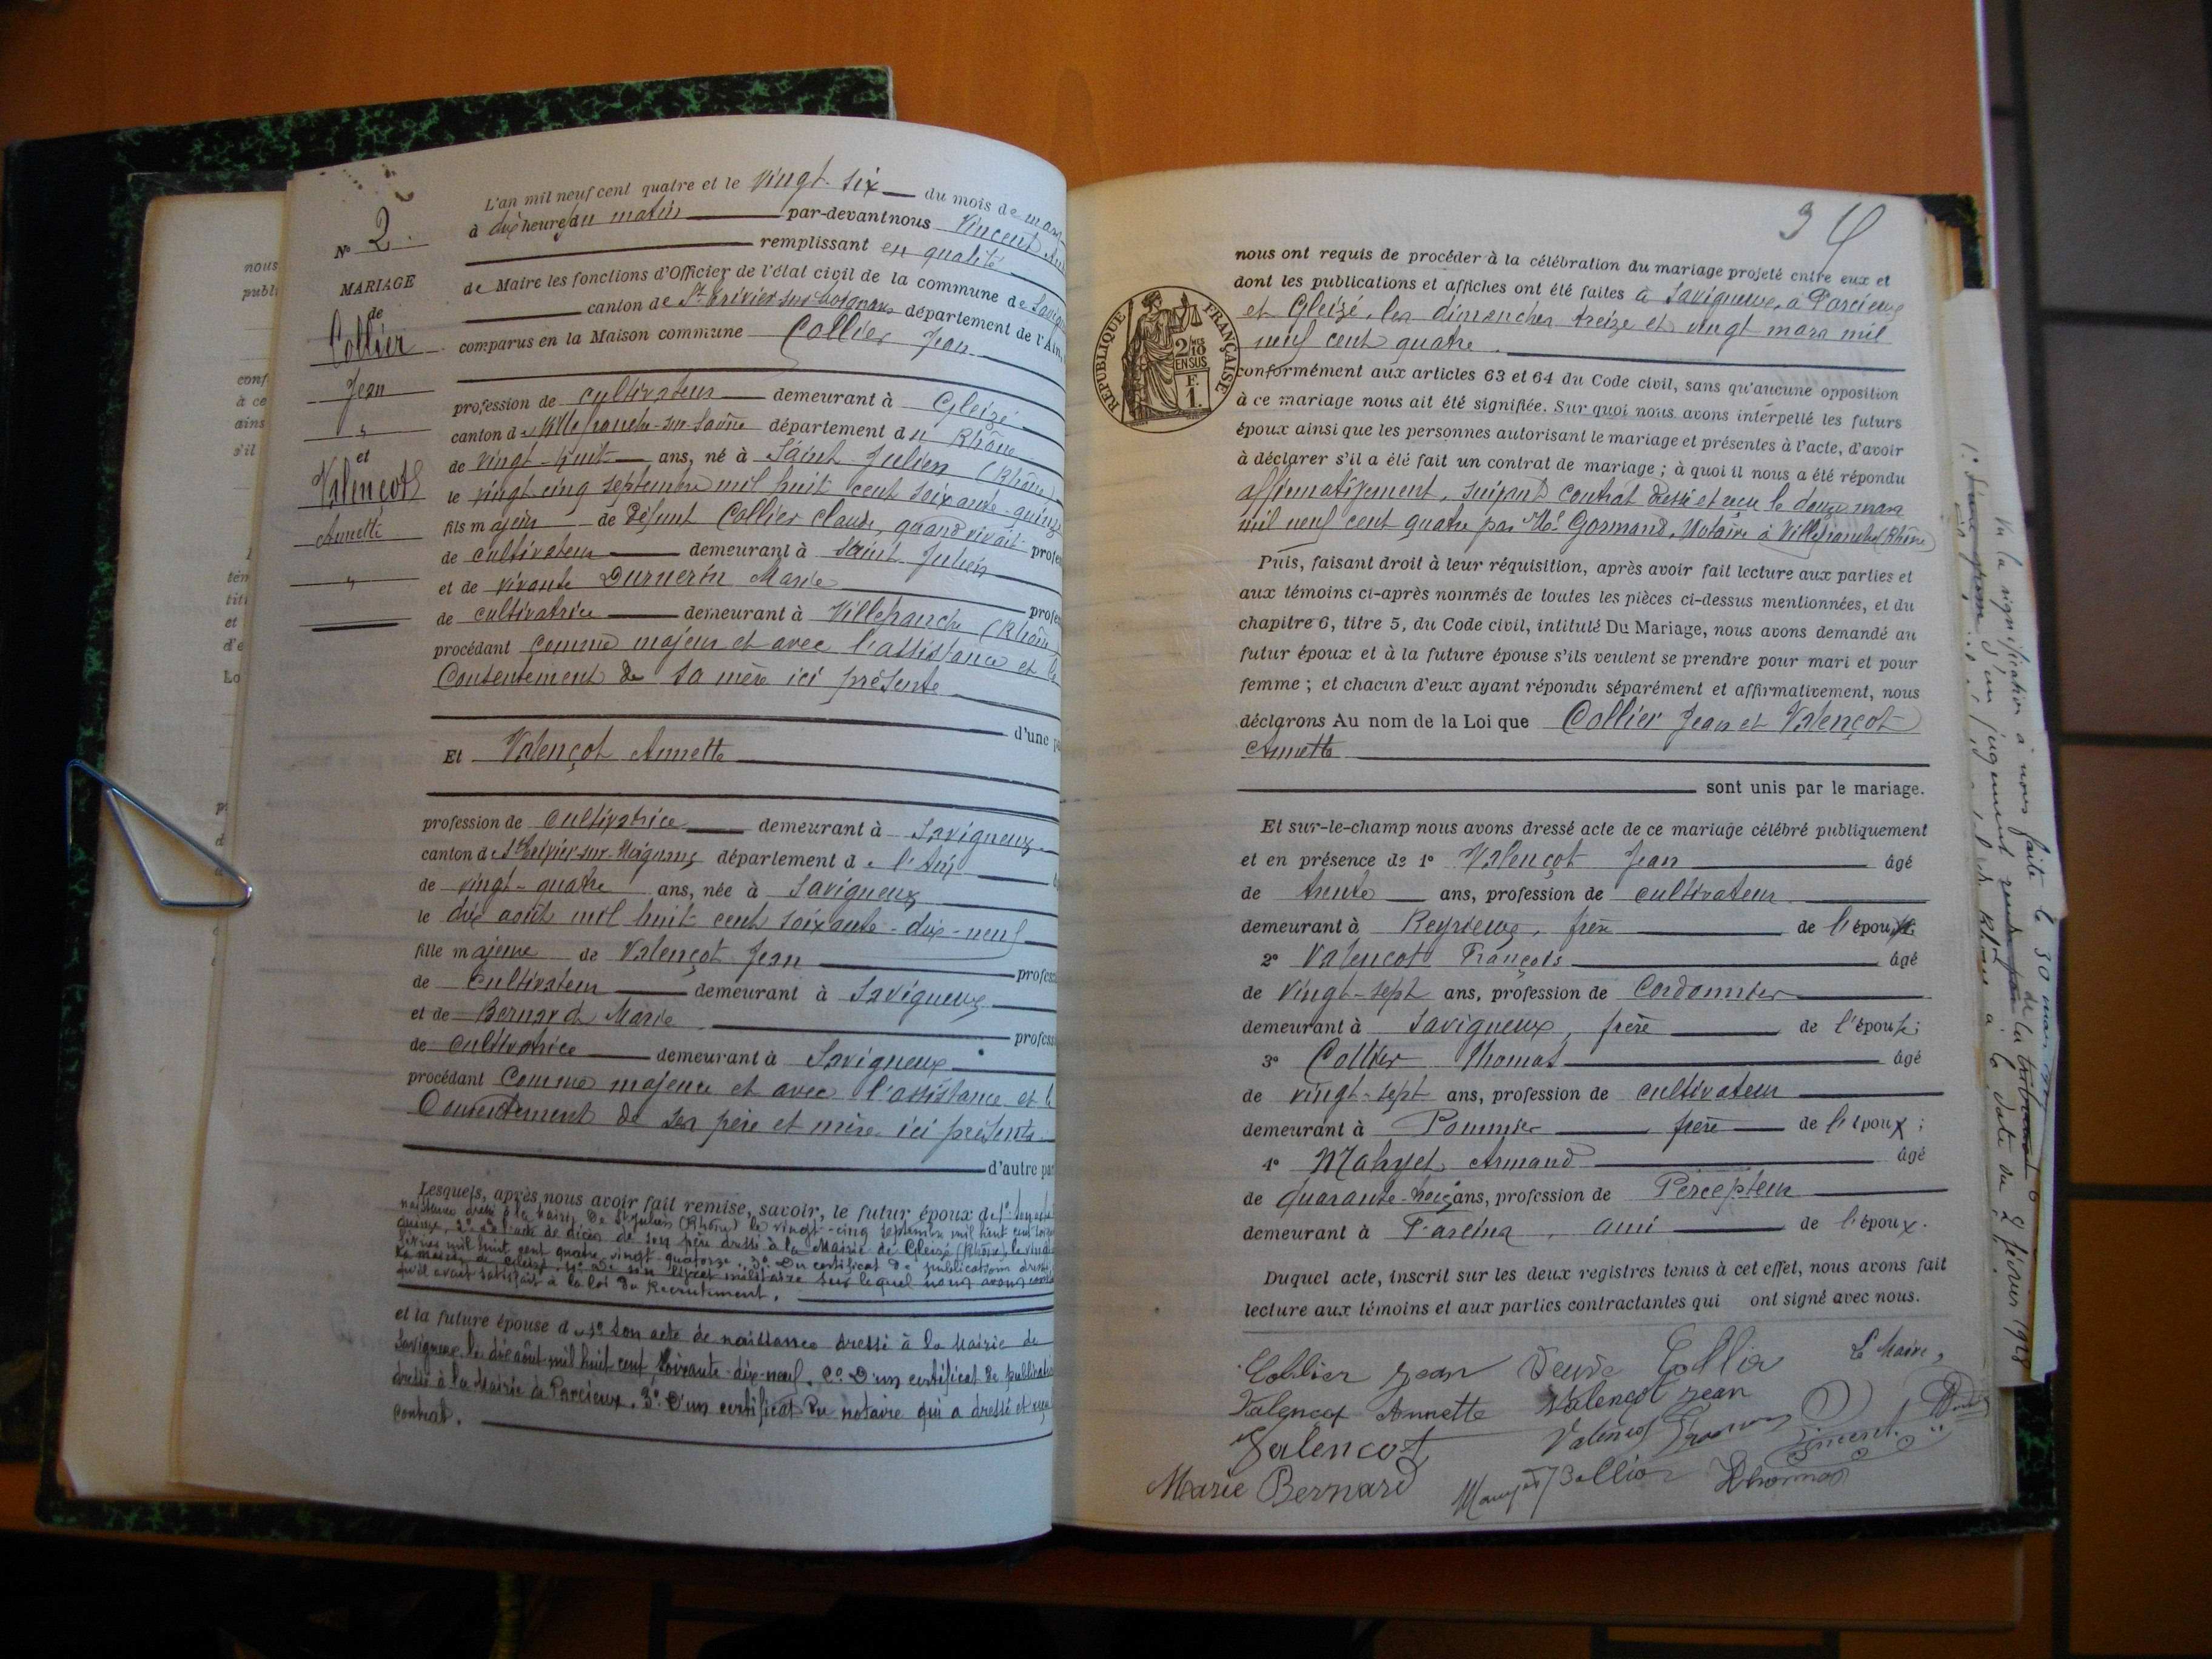 N° 2.
MARIAGE
de
Collier
Jean
"
et
Valençot
Annette
"
L'an mil neuf cent quatre et le Vingt-six du mois de mars
à dix heures du matin par-devant nous Vincent
remplissant en qualité
de Maire les fonctions d'Officier de l'état civil de la commune de Savign
canton de St Trivier-sur-Moignans département de l'Ain,
comparus en la Maison commune Collier Jean
profession de cultivateur demeurant à Gleizé
canton de Villefranche-sur-Saône département du Rhône
de vingt-huit ans, né à Saint-Julien (Rhône)
le vingt-cinq septembre mil huit cent soixante-quinze
fils majeur de défunt Collier Claude, quand vivait profes
de cultivateur demeurant à Saint-Julien
et de vivante Durnerin Marie profes
de cultivatrice demeurant à Villefranche (Rhône)
procédant comme majeur et avec l'assistance et le
Consentement de sa mère ici présente
d'une pa
Et Valençot Annette
profession de cultivatrice demeurant à Savigneux
canton de St Trivier-sur-Moignans département de l'Ain
de vingt-quatre ans, née à Savigneux
le dix août mil huit cent soixante-dix-neuf
fille majeure de Valençot Jean profess
de cultivateur demeurant à Savigneux
et de Bernard Marie profess
de cultivatrice demeurant à Savigneux
procédant comme majeure et avec l'assistance et le
Consentement de ses père et mère ici présents
d'autre par
Lesquels, après nous avoir fait remise, savoir, le futur époux de 1° son acte
naissance dressé à la Mairie de St Julien (Rhône) le vingt-cinq septembre mil huit cent soixante
quinze, 2° de l'acte de décès de son père dressé à la Mairie de Gleizé (Rhône), le vingt
février mil huit cent quatre-vingt-quatorze. 3° Du certificat de publications dressé
La mairie de Gleizé. 4° De son livret militaire sur lequel nous avons
qu'il avait satisfait à la loi du Recrutement.
et la future épouse de 1° Son acte de naissance dressé à la Mairie de
Savigneux le dix août mil huit cent soixante-dix-neuf. 2° D'un certificat de publication
dressé à la Mairie de Parcieux. 3° D'un certificat du notaire qui a dressé et reçu
contrat.
3
RÉPUBLIQUE FRANÇAISE
2/10 EN SUS
F. 1.
nous ont requis de procéder à la célébration du mariage projeté entre eux et
dont les publications et affiches ont été faites à Savigneux, à Parcieux
et Gleizé, les dimanches treize et vingt mars mil
neuf cent quatre.
conformément aux articles 63 et 64 du Code civil, sans qu'aucune opposition
à ce mariage nous ait été signifiée. Sur quoi nous avons interpellé les futurs
époux ainsi que les personnes autorisant le mariage et présentes à l'acte, d'avoir
à déclarer s'il a été fait un contrat de mariage ; à quoi il nous a été répondu
affirmativement, suivant contrat dressé et reçu le douze mars
mil neuf cent quatre par Me Gormand, Notaire à Villefranche (Rhône)
Puis, faisant droit à leur réquisition, après avoir fait lecture aux parties et
aux témoins ci-après nommés de toutes les pièces ci-dessus mentionnées, et du
chapitre 6, titre 5, du Code civil, intitulé Du Mariage, nous avons demandé au
futur époux et à la future épouse s'ils veulent se prendre pour mari et pour
femme ; et chacun d'eux ayant répondu séparément et affirmativement, nous
déclarons Au nom de la Loi que Collier Jean et Valençot
Annette
sont unis par le mariage.
Et sur-le-champ nous avons dressé acte de ce mariage célébré publiquement
et en présence de 1° Valençot Jean âgé
de trente ans, profession de cultivateur
demeurant à Reyrieux, frère de l'épouse
2° Valençot François âgé
de vingt-sept ans, profession de Cordonnier
demeurant à Savigneux, frère de l'épouse;
3° Collier Thomas âgé
de vingt-sept ans, profession de cultivateur
demeurant à Pommier frère de l'époux ;
4° Manyet Armand âgé
de quarante-trois ans, profession de Percepteur
demeurant à ami de l'époux.
Duquel acte, inscrit sur les deux registres tenus à cet effet, nous avons fait
lecture aux témoins et aux parties contractantes qui ont signé avec nous.
Collier Jean Veuve Collier Le Maire,
Valençot Annette Valençot Jean
Valençot Valençot François Vincent
Marie Bernard Manyet Collier Thomas
Vu la signification à nous faite le 30 mai
d'un jugement de la
Rhône à la date du 9 février 1928